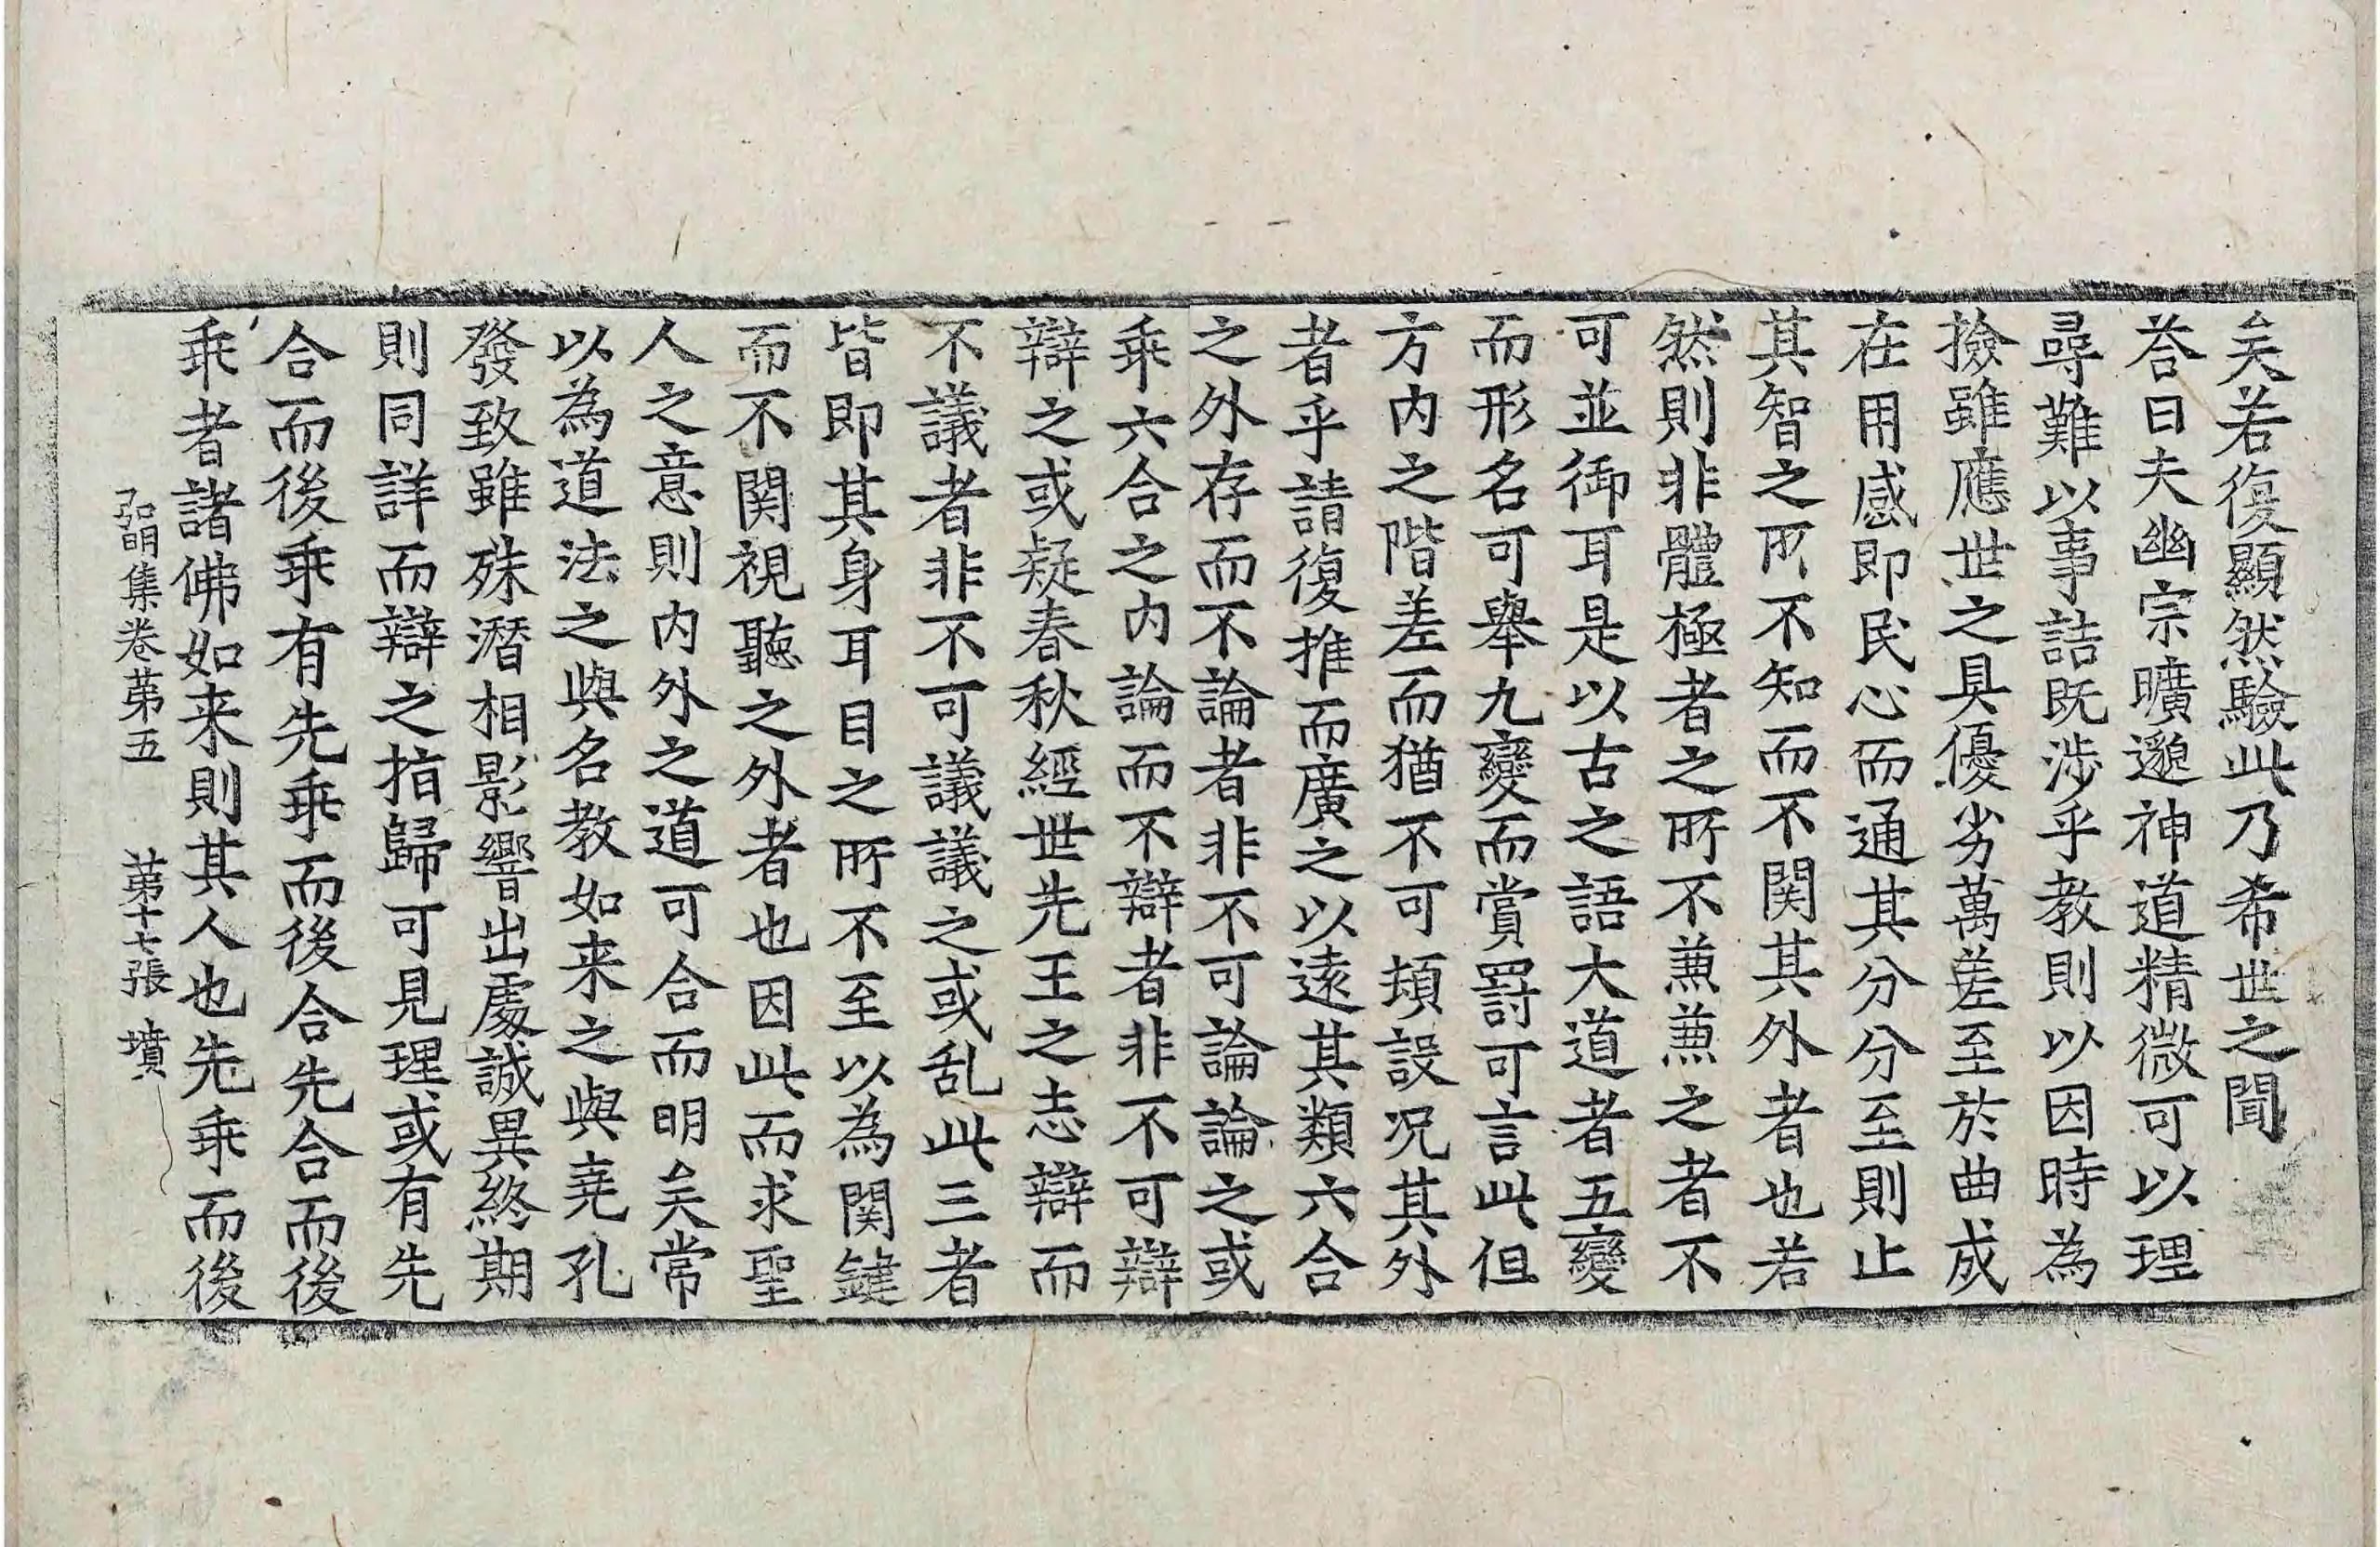 矣若復顯然驗此乃希世之聞
荅曰夫幽宗曠邈神道精微可以理
尋難以事詰既涉乎教則以因時為
撿雖應世之具優劣萬差至於曲成
在用感即民心而通其分分至則止
其智之所不知而不関其外者也若
然則非體極者之所不蒹蒹之者不
可並御耳是以古之語大道者五變
而形名可舉九變而賞罰可言此但
方内之階差而猶不可頓設况其外
者乎請復推而廣之以遠其類六合
之外存而不論者非不可論論之或
乖六合之内論而不辯者非不可辯
辯之或疑春秋經世先王之志辯而
不議者非不可議議之或乱此三者
皆即其身耳目之所不至以為関鍵
而不関視聽之外者也因此而求聖
人之意則内外之道可合而明矣常
以為道法之與名教如来之與堯孔
發致雖殊潛相影響出處誠異終期
則同詳而辯之指歸可見理或有先
合而後乖有先乖而後合先合而後
乖者諸佛如来則其人也先乖而後
弘明集卷苐五　苐十七張　墳